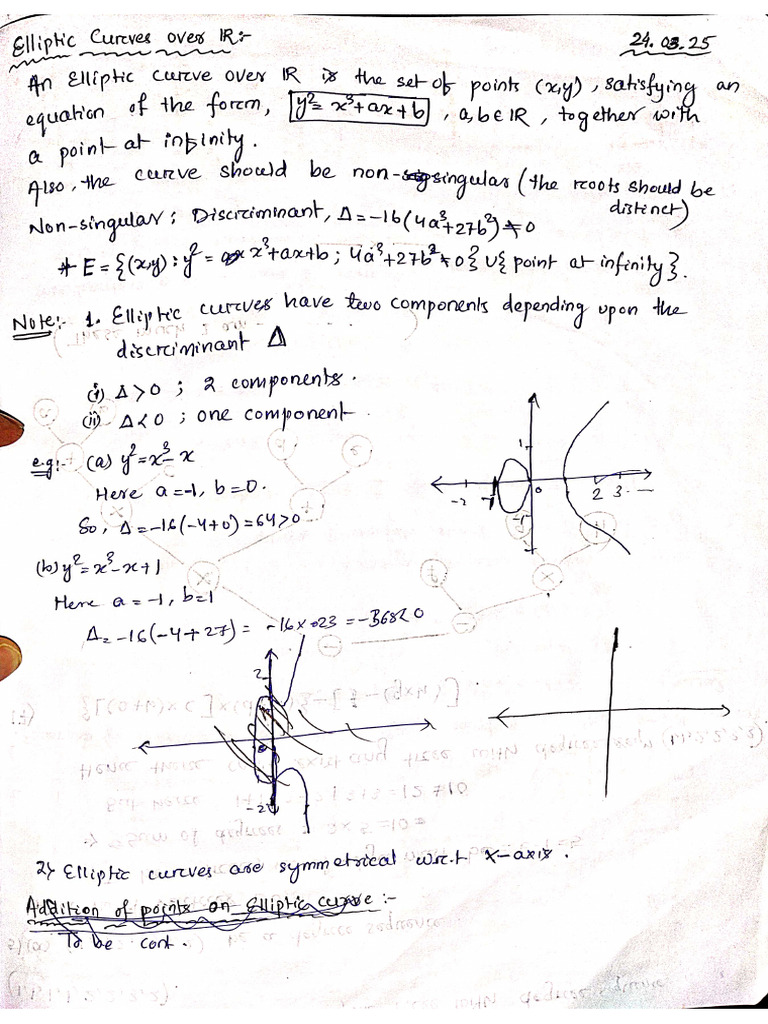 Elliptic Curves over IR:-
24.03.25
An Elliptic curve over IR is the set of points (x,y), satisfying an
equation of the form, y²=x³+ax+b, a,b∈IR, together with
a point at infinity.
Also, the curve should be non-singular (the roots should be
distinct)
Non-singular; Discriminant, Δ=-16(4a³+27b²)≠0
* E={(x,y): y²= x³+ax+b; 4a³+27b²≠0}∪{point at infinity}.
Note:- 1. Elliptic curves have two components depending upon the
discriminant Δ
(i) Δ>0; 2 components.
(ii) Δ<0; one component.
e.g:- (a) y²=x³-x
Here a=-1, b=0.
So, Δ=-16(-4+0)=64>0
1
-2 -1 0 2 3 -
-1
(b) y²=x³-x+1
Here a=-1, b=1
Δ=-16(-4+27)= -16×23=-368<0
2
0
-2
2) Elliptic curves are symmetrical w.r.t x-axis.
Addition of points on Elliptic curve:-
To be cont.